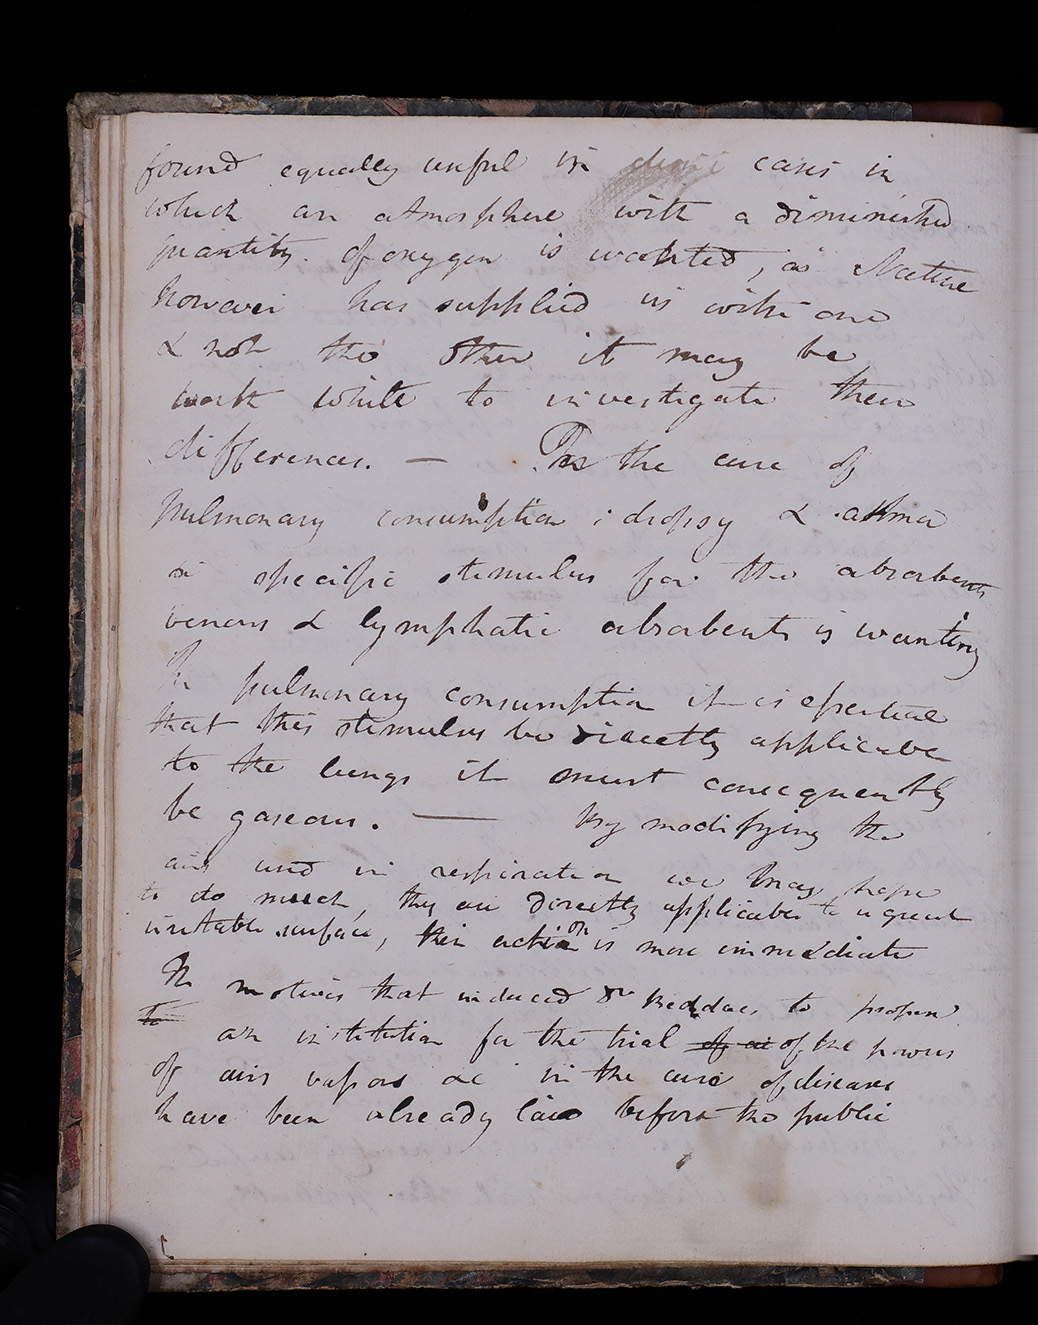 found equally useful in cases in
which an atmosphere with a diminished
quantity of oxygen is wanted, as Nature
however has supplied us with one
& not the other it may be
worth while to investigate their
differences. — In the cure of
pulmonary consumption, dropsy & astma
a specific stimulus for the absorbents
venous & lymphatic absorbents is wanting
In pulmonary consumption it is essential
that this stimulus be directly applicable
to the lungs it must consequently
be gaseous. — By modifying the
airs used in respiration we may hope
to do much, they are directly applicable to a great
irritable surface, their action is more immediate
The motives that induced Dr Beddoes to propose
to an institution for the trial of ai of the powers
of airs vapors &c in the cure of diseases
have been already laid before the public